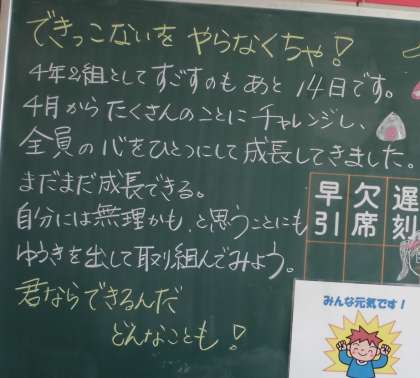 できっこないをやらなくちゃ!
4年2組としてすごすのもあと14日です。
4月からたくさんのことにチャレンジし、
全員の心をひとつにして成長してきました。
まだまだ成長できる。
自分には無理かも、と思うことにも
ゆうきを出して取り組んでみよう。
君ならできるんだ
どんなことも!
遅刻
欠席
早引
みんな元気です!